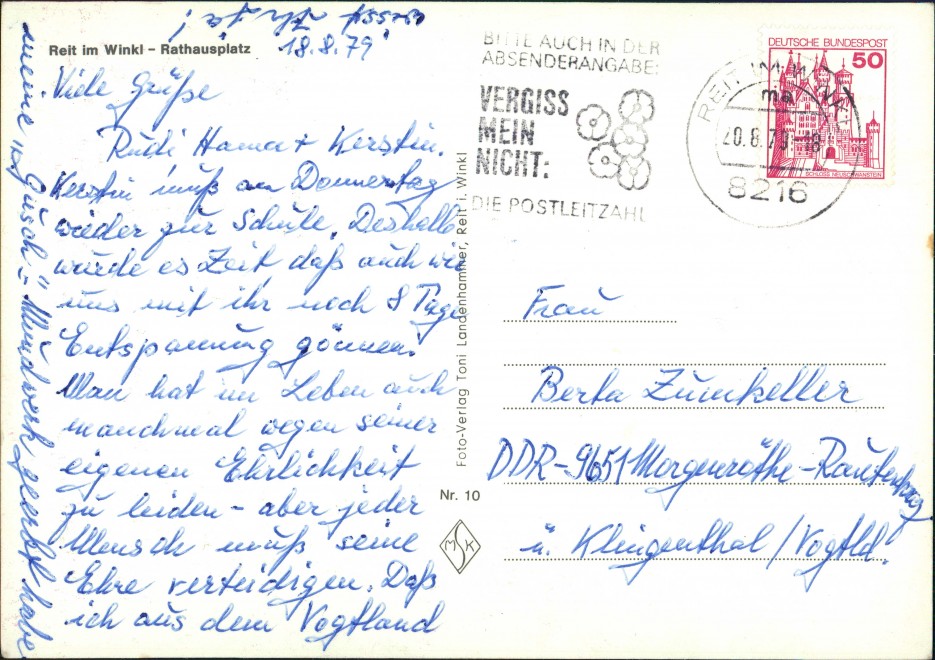 Reit im Winkl – Rathausplatz
18.8.79
Viele Grüße
Rudi Hanna + Kerstin.
Kerstin muß am Donnerstag
wieder zur Schule. Deshalb
würde es Zeit, daß auch wir
uns mit ihr noch 8 Tage
Entspannung gönnen.
Man hat im Leben auch
manchmal wegen seiner
eigenen Ehrlichkeit
zu leiden – aber jeder
Mensch muß seine
Ehre verteidigen. Daß
ich aus dem Vogtland
meine "Gusch = Mundwerk" geerbt habe
Foto-Verlag Toni Landenhammer, Reit i. Winkl
Nr. 10
MSK
BITTE AUCH IN DER
ABSENDERANGABE:
VERGISS
MEIN
NICHT:
DIE POSTLEITZAHL
REIT IM WINKL
ma
20.8.79-18
8216
DEUTSCHE BUNDESPOST
50
SCHLOSS NEUSCHWANSTEIN
Frau
Berta Zumkeller
DDR-9651 Morgenröthe-Rautenkranz
ü. Klingenthal/Vogtld.